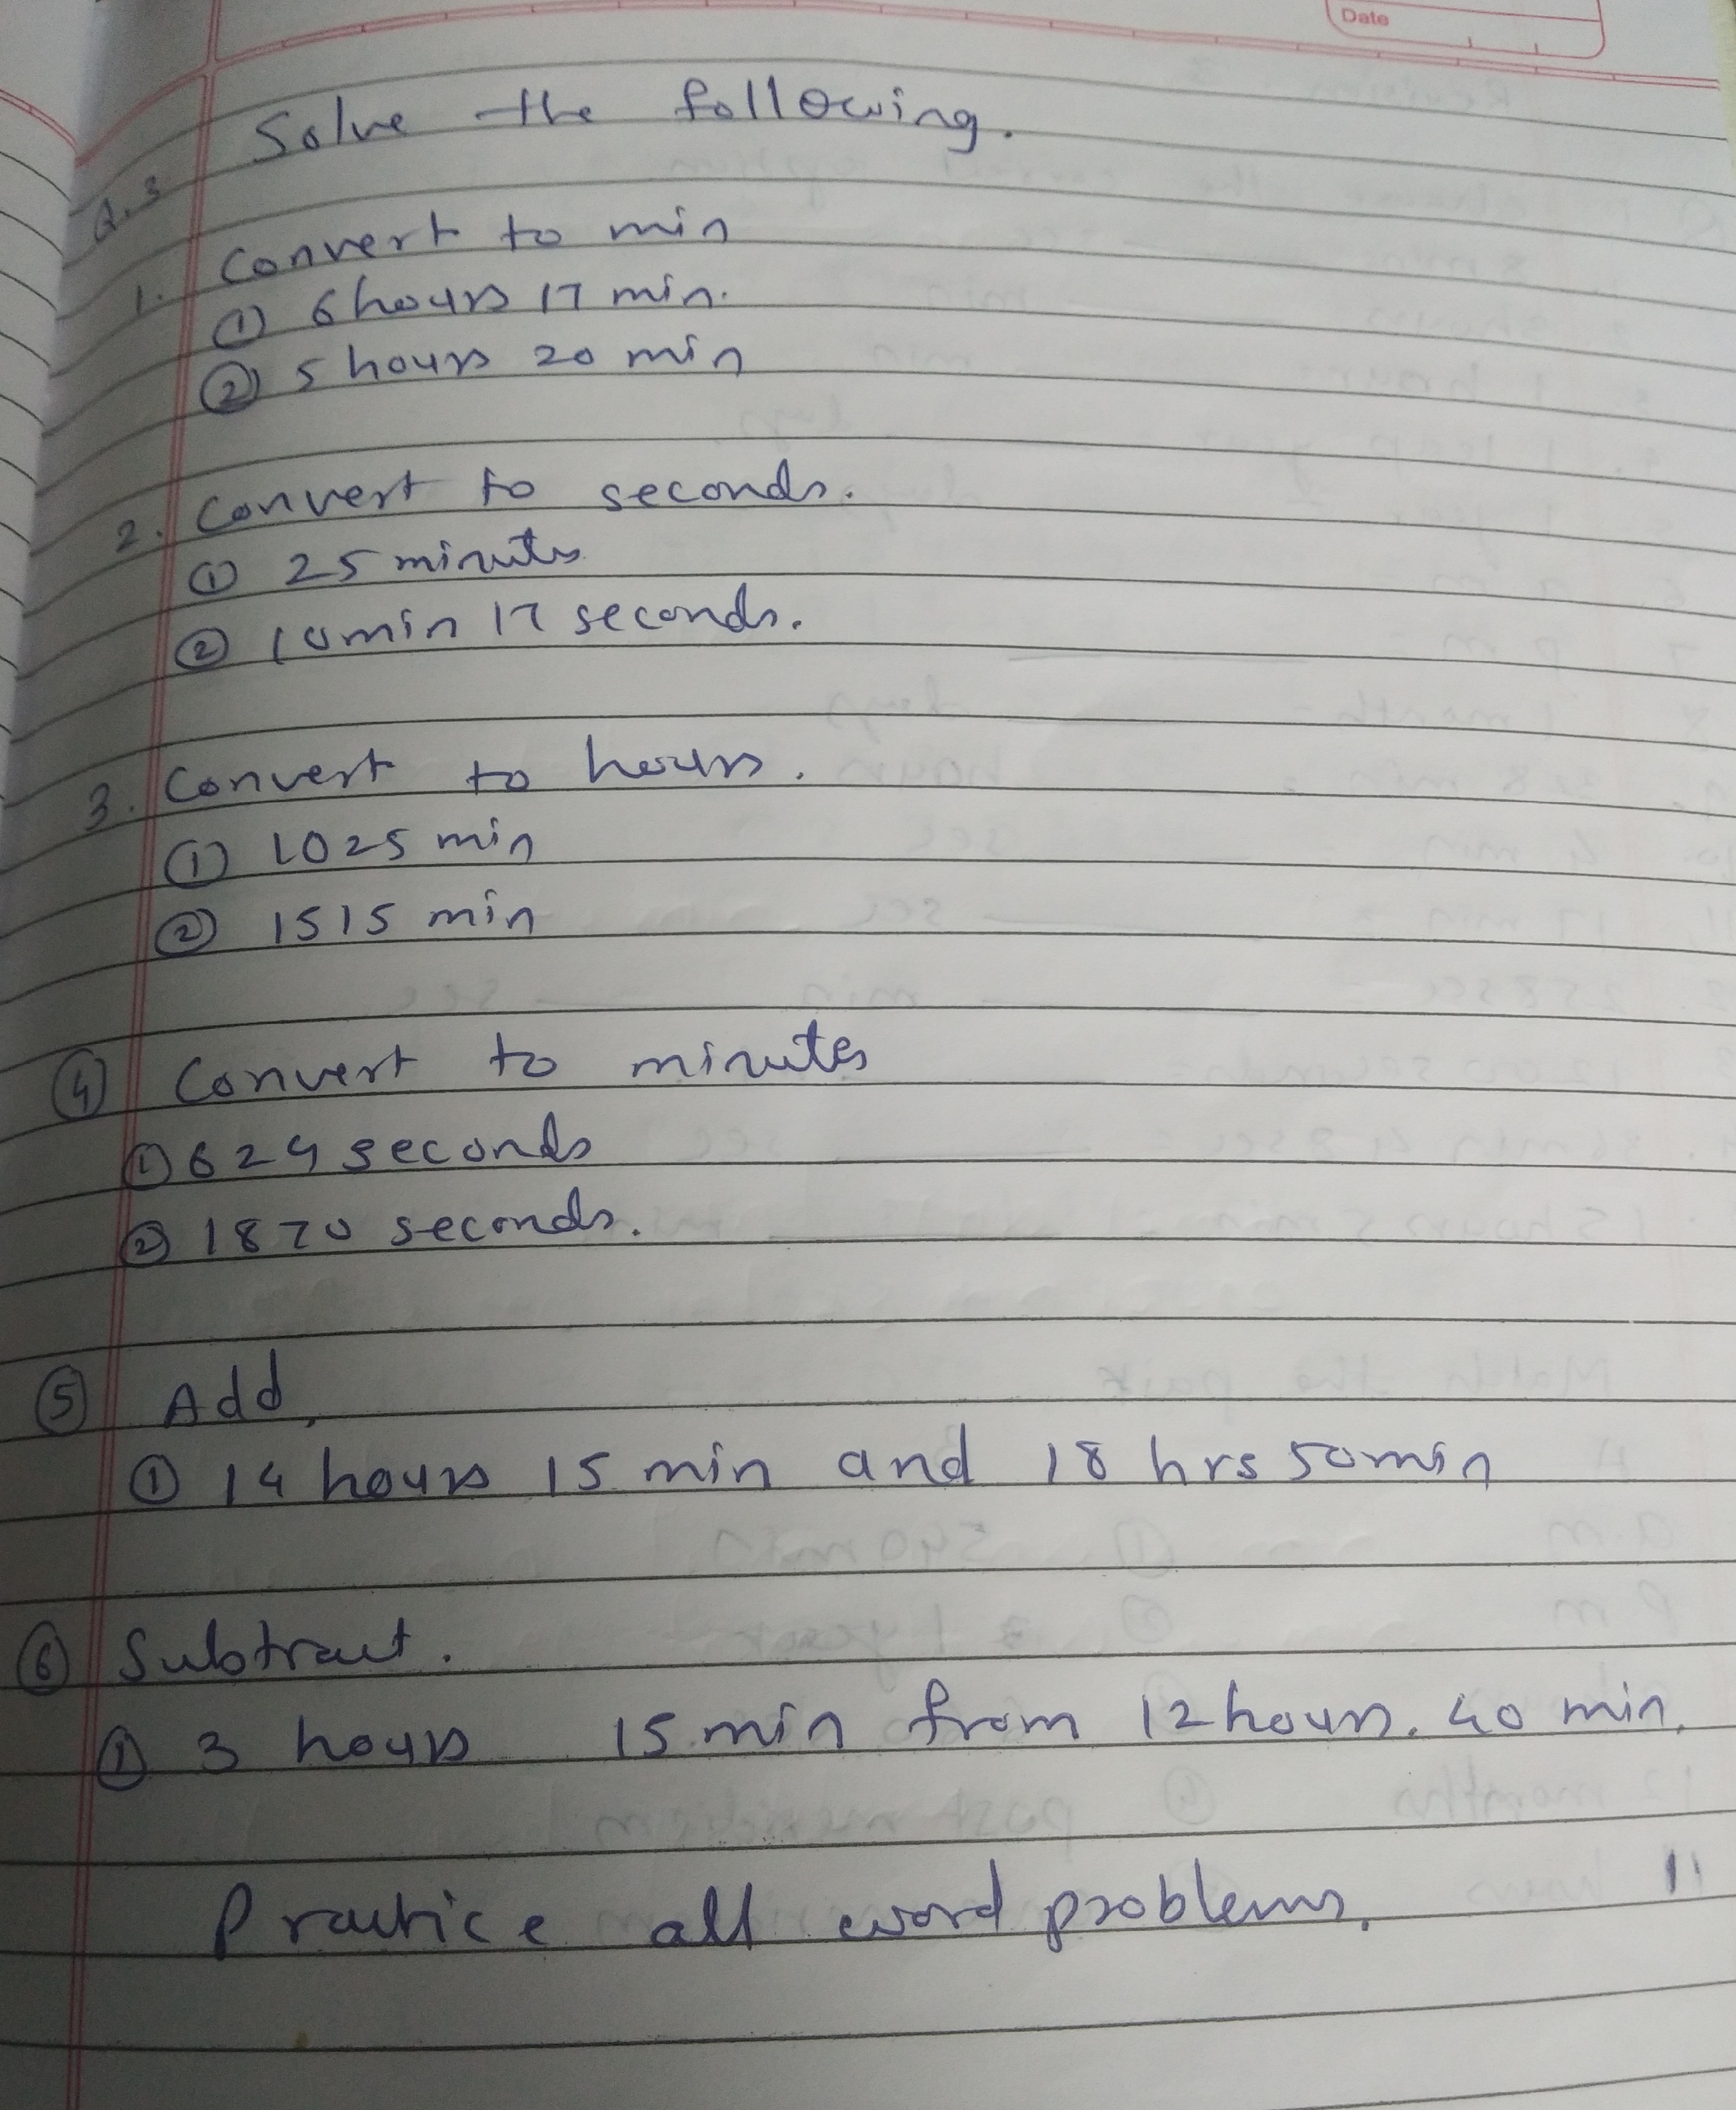 Date
Q.3 Solve the following.
1. Convert to min
① 6 hours 17 min.
② 5 hours 20 min
2. Convert to seconds.
① 25 minutes
② 10 min 17 seconds.
3. Convert to hours.
① 1025 min
② 1515 min
④ Convert to minutes
① 624 seconds
② 1870 seconds.
⑤ Add,
① 14 hours 15 min and 18 hrs 50 min
⑥ Subtract.
① 3 hours 15 min from 12 hours. 40 min.
Practice all word problems.